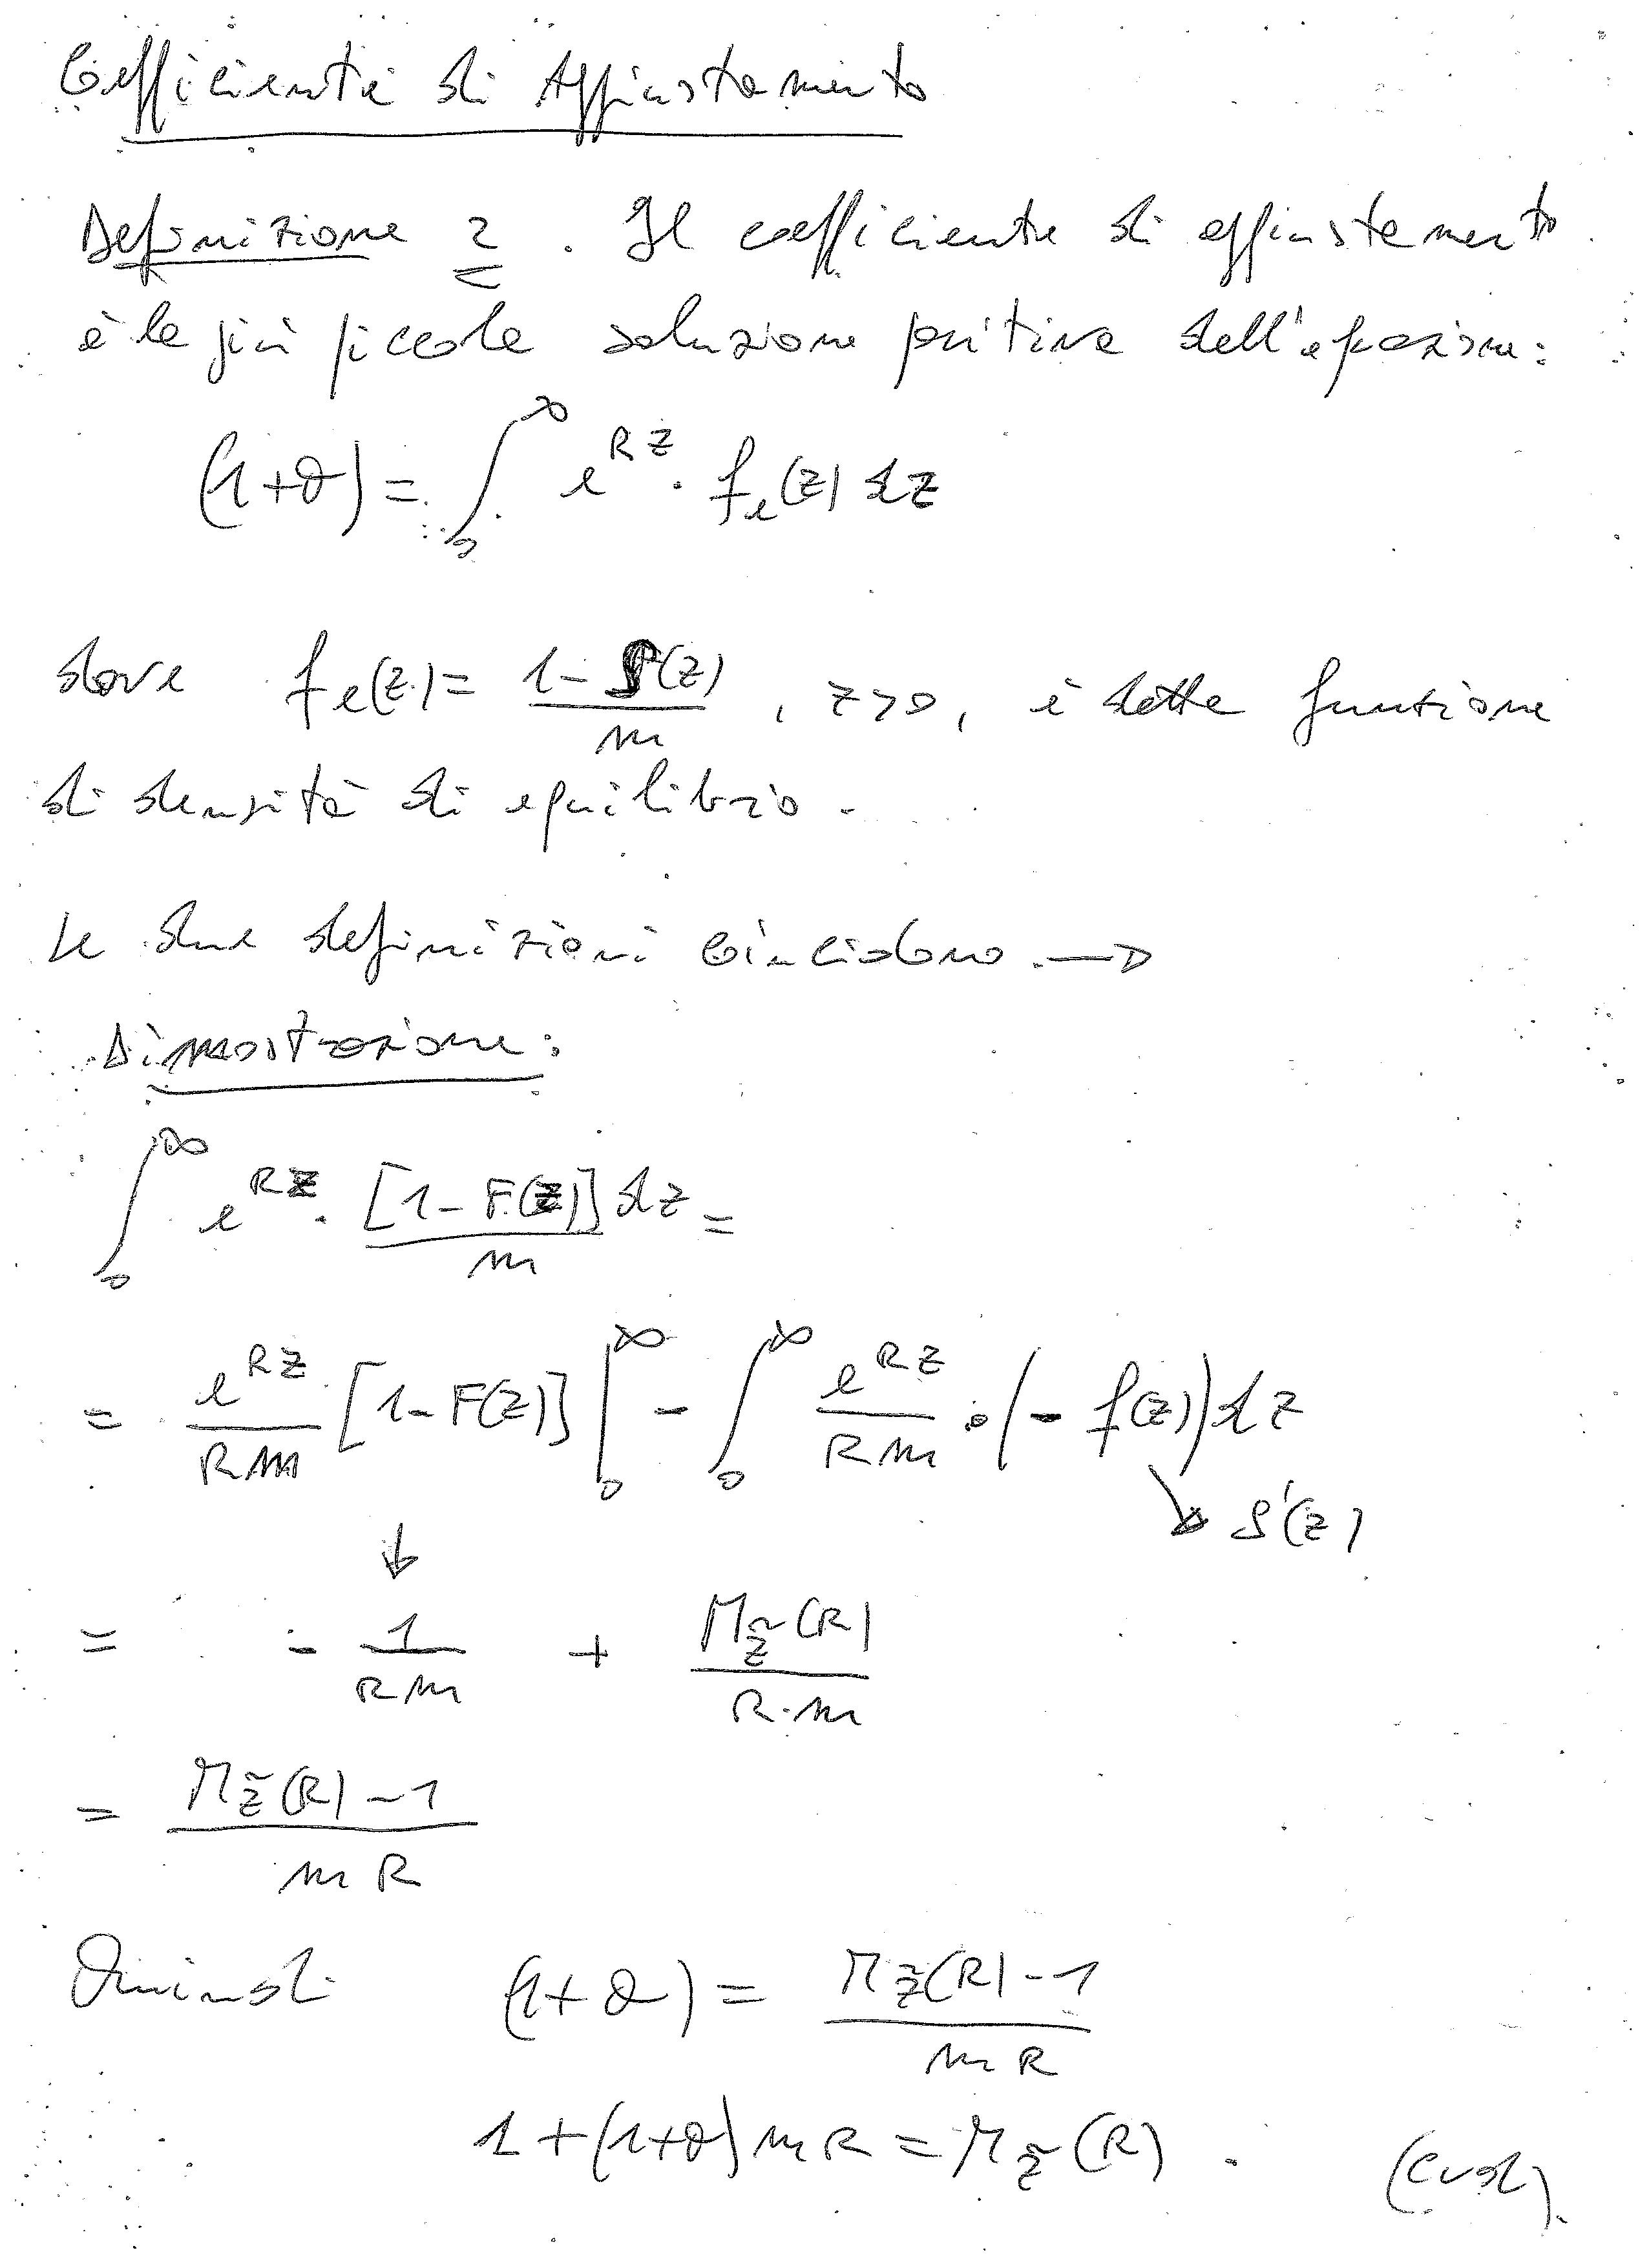 Coefficiente di Aggiustamento
Definizione 2. Il coefficiente di aggiustamento
è la più piccola soluzione positiva dell'equazione:
(1+θ) = ∫₀^∞ e^{Rz} · f_e(z) dz
dove f_e(z) = (1 - F(z))/m , z>0, è detta funzione
di densità di equilibrio.
Le due definizioni coincidono. →
Dimostrazione:
∫₀^∞ e^{Rz} · [1-F(z)]/m dz =
= e^{Rz}/(Rm) [1-F(z)] |₀^∞ - ∫₀^∞ e^{Rz}/(Rm) · (-f(z)) dz
↓ ↘ S'(z)
= - 1/(Rm) + M_z̃(R)/(R·m)
= (M_z̃(R) - 1)/(mR)
Quindi (1+θ) = (M_z̃(R) - 1)/(mR)
1+(1+θ)mR = M_z̃(R) . (cvd).